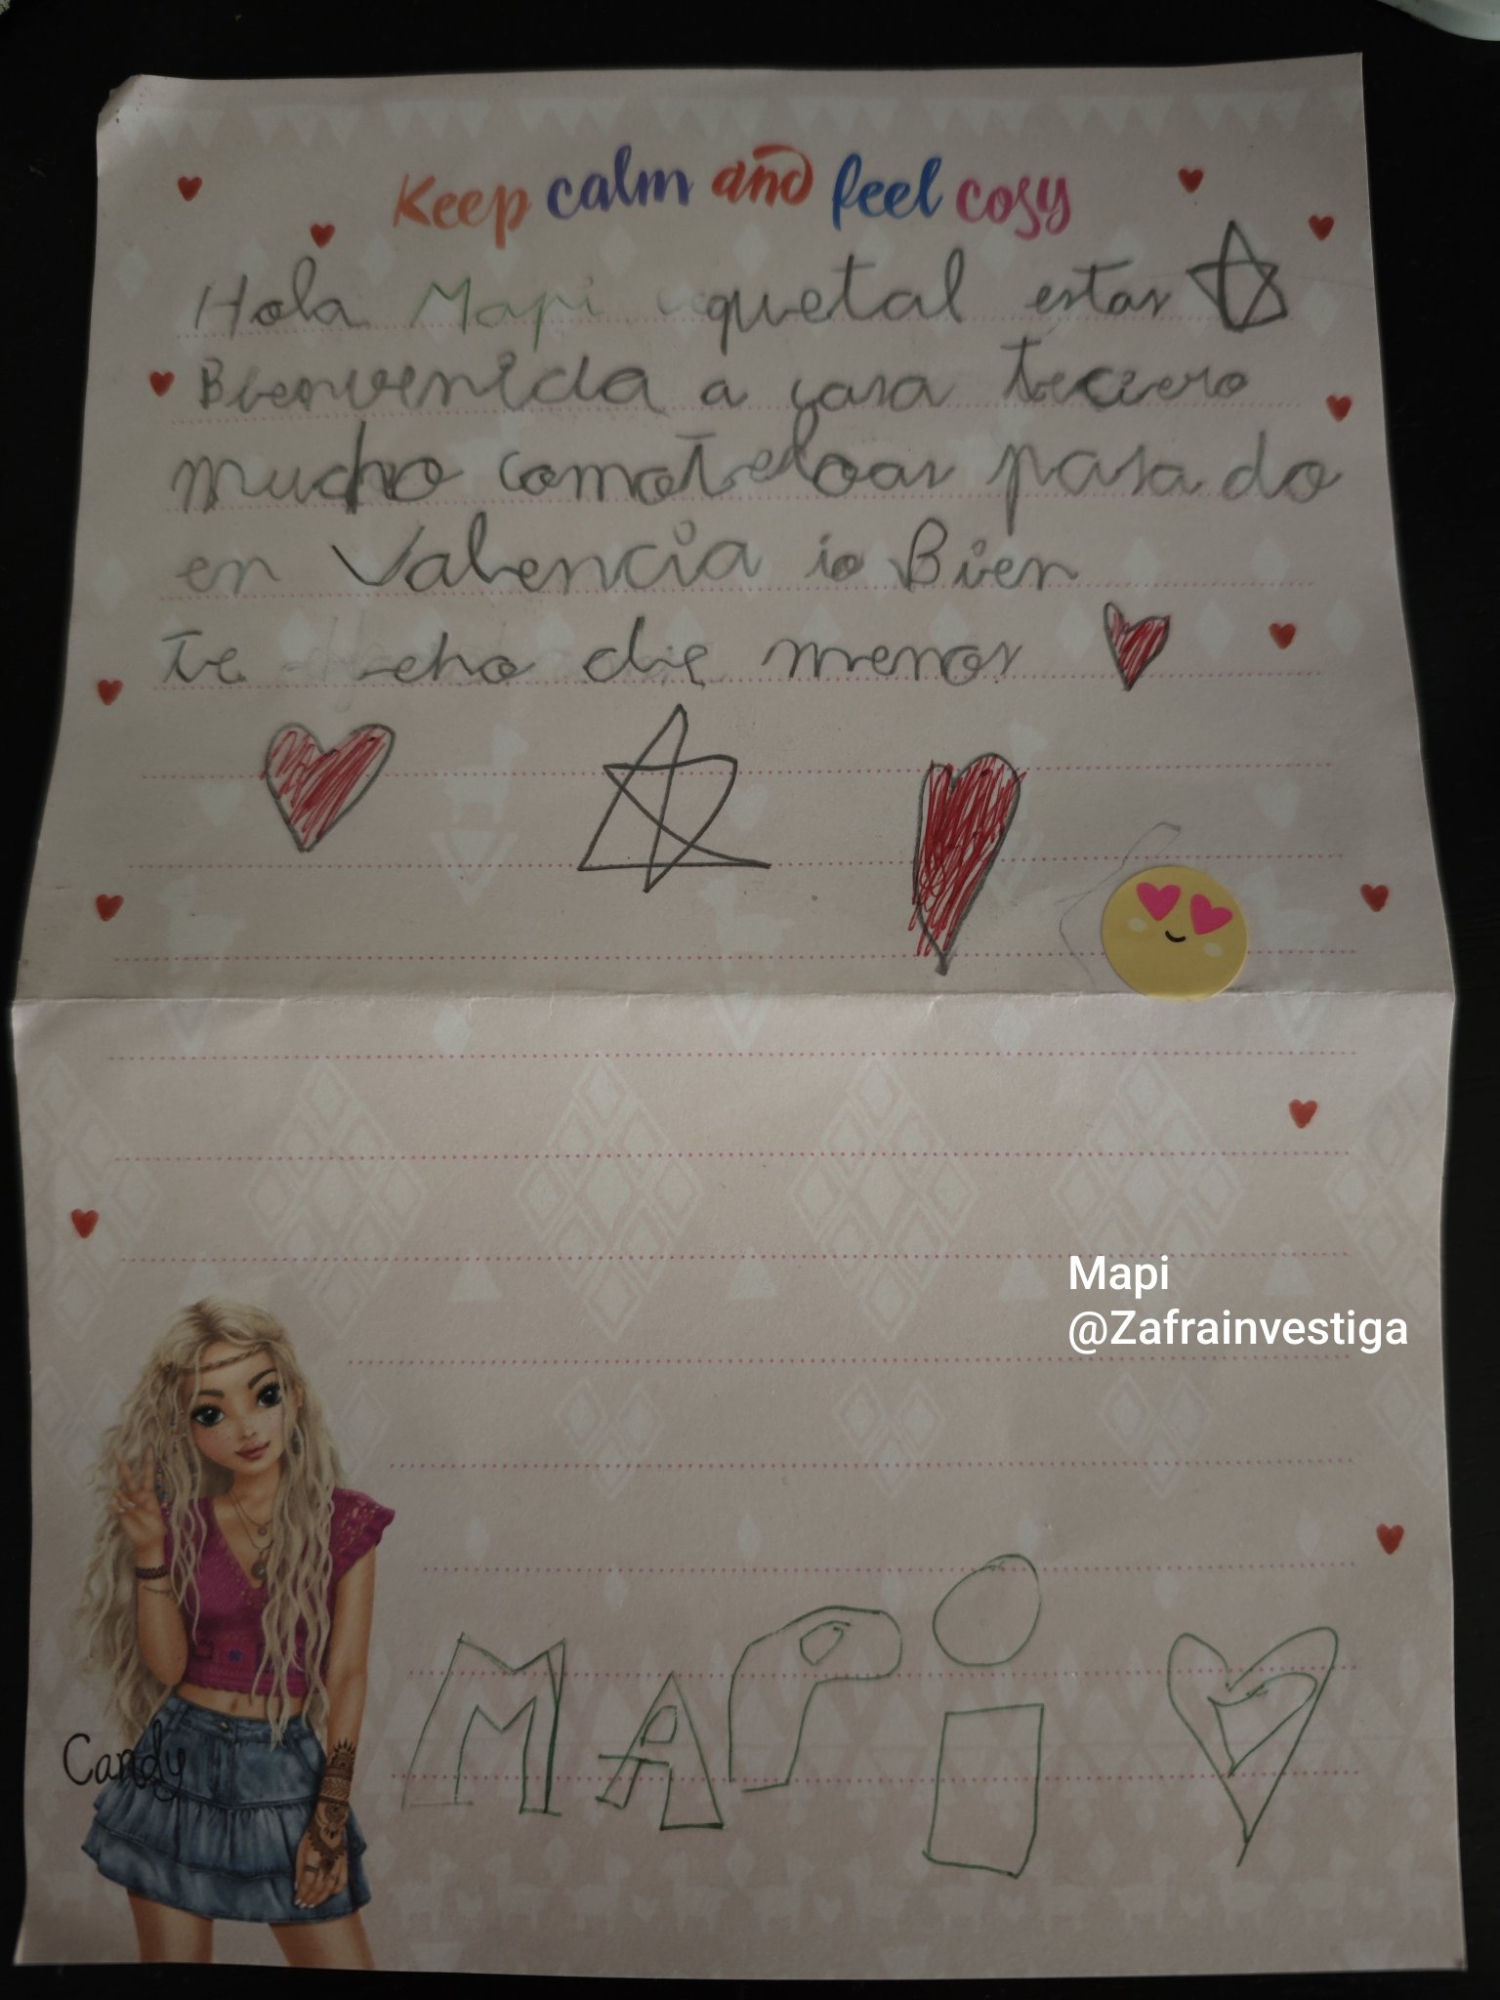 Keep calm and feel cosy
Hola Mapi quetal estas
Bienvenida a casa teciero
mucho comoteloas pasado
en Valencia io Bien
te echo de menos
Mapi
@Zafrainvestiga
Candy
MAPi